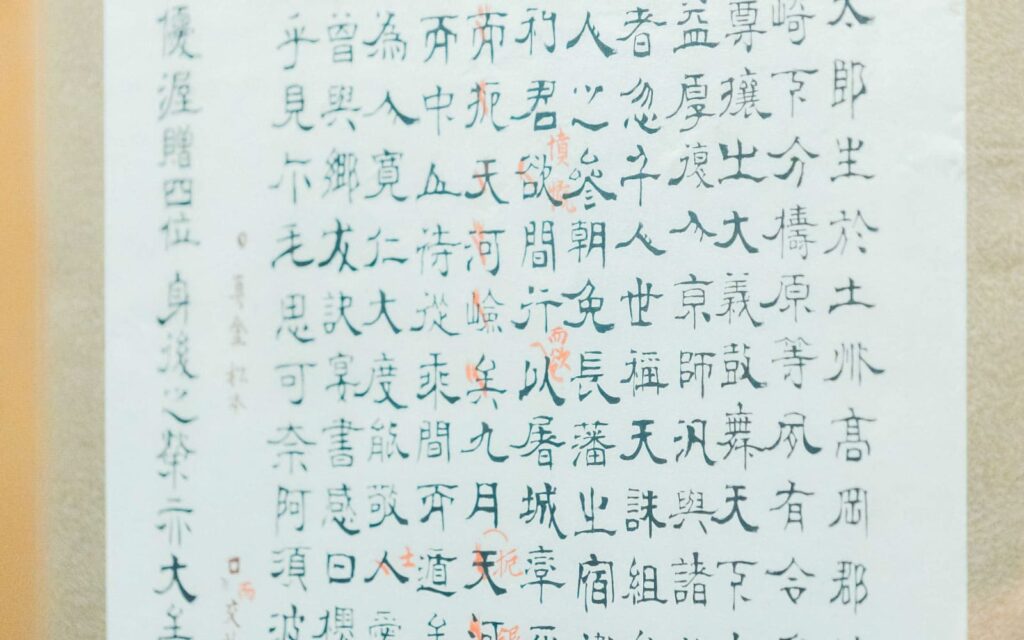 太郎生於土州高岡郡
崎下分檮原等夙有令
尊攘之大義鼓舞天下
益厚復入京師汎與諸
者忽乎人世稱天誅組
人之參朝免長藩之宿
利君欲間行以屠城
憤慨
而扼天河嶮矣九月天河
扼
而中待從乘間而遁
士
為人寬仁大度能敬人愛
曾與鄉友訣寡書感曰櫻
乎見尓毛思可奈阿須波
優渥贈四位身後之榮亦大矣